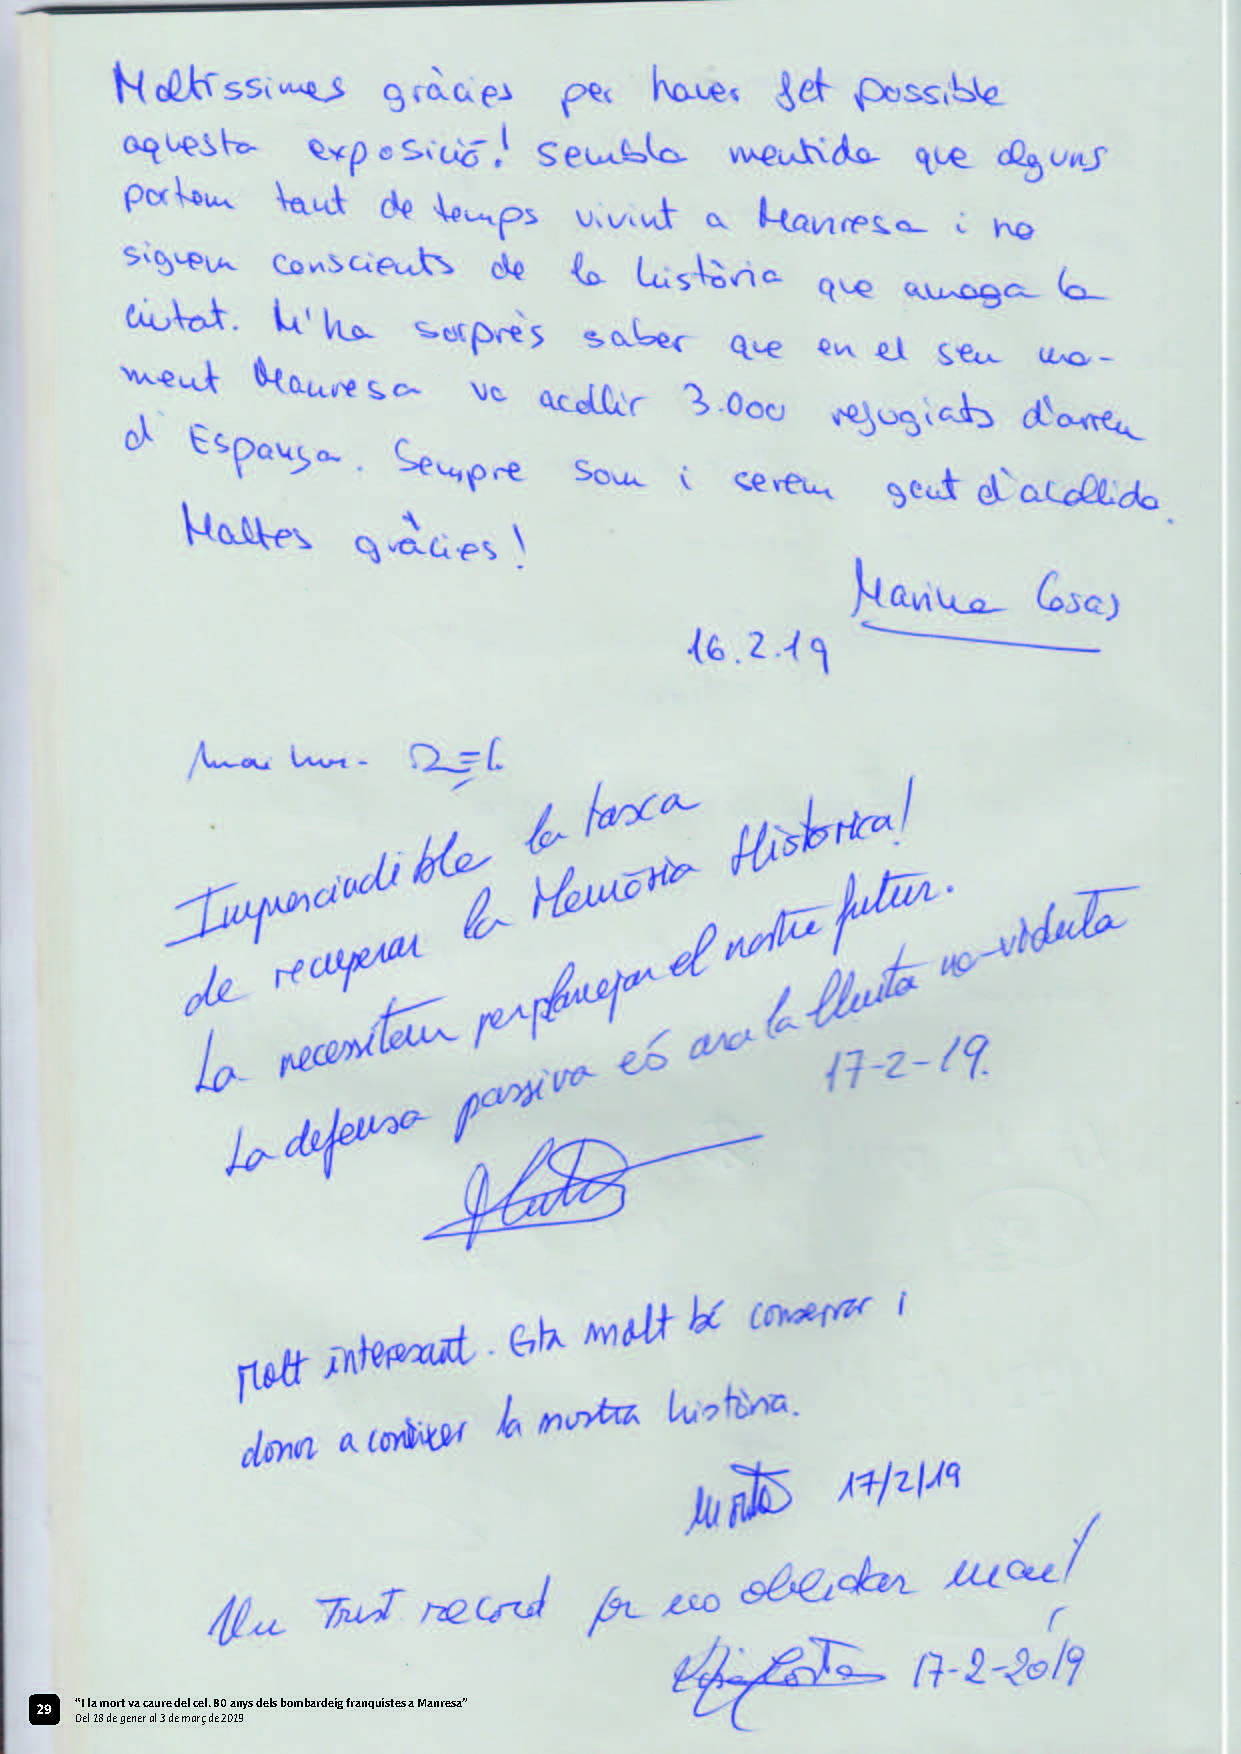 Moltíssimes gràcies per haver fet possible
aquesta exposició! Sembla mentida que alguns
portem tant de temps vivint a Manresa i no
siguem conscients de la història que amaga la
ciutat. M'ha sorprès saber que en el seu mo-
ment Manresa va acollir 3.000 refugiats d'arreu
d'Espanya. Sempre som i serem gent d'acollida.
Moltes gràcies!
Marina Casas
16.2.19
Imprescindible la tasca
de recuperar la Memòria Històrica!
La necessitem per planejar el nostre futur.
La defensa passiva és ara la lluita no-violenta
17-2-19.
Molt interesant. Esta molt bé conservar i
donar a conèixer la nostra història.
17/2/19
Un Trist record per no oblidar mai!
Costa 17-2-2019
29
"I la mort va caure del cel. 80 anys dels bombardeig franquistes a Manresa"
Del 18 de gener al 3 de març de 2019